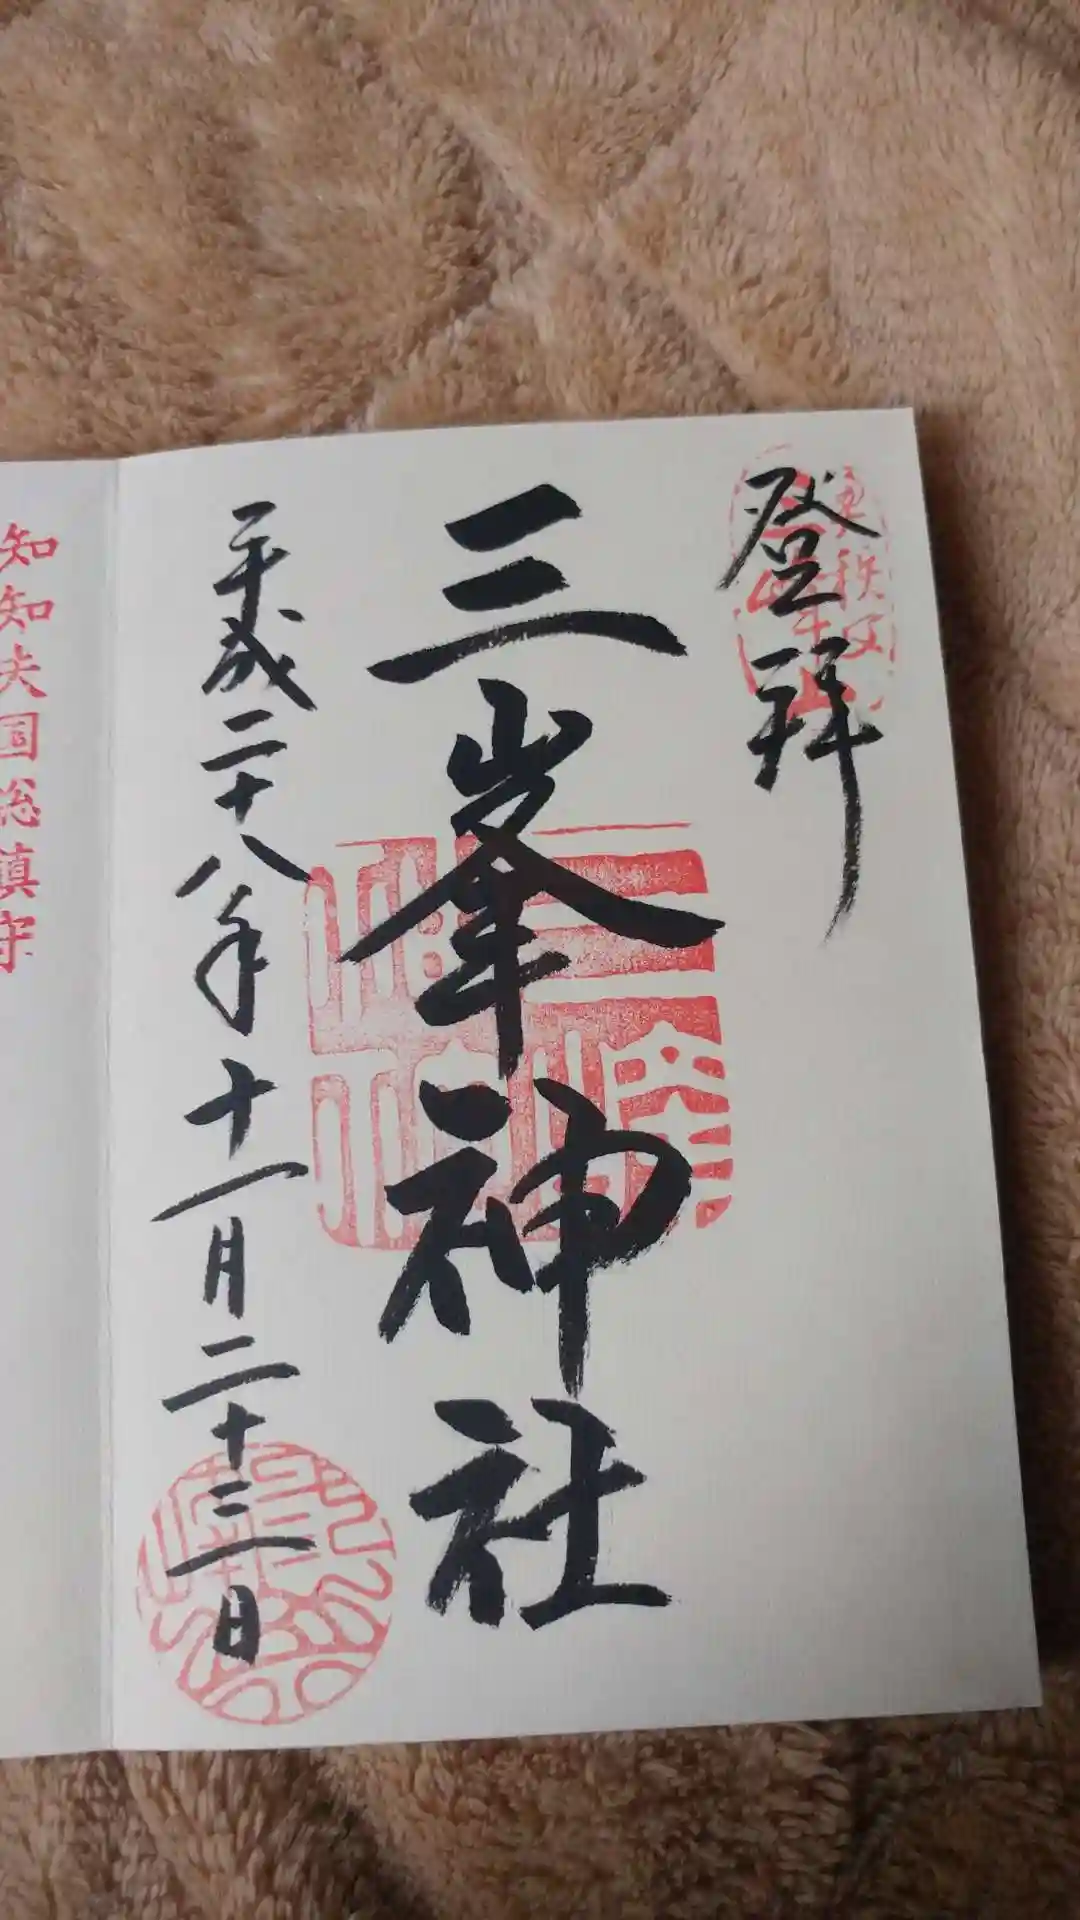 登拝
三峯神社
平成二十八年十一月二十三日
知知夫国総鎮守